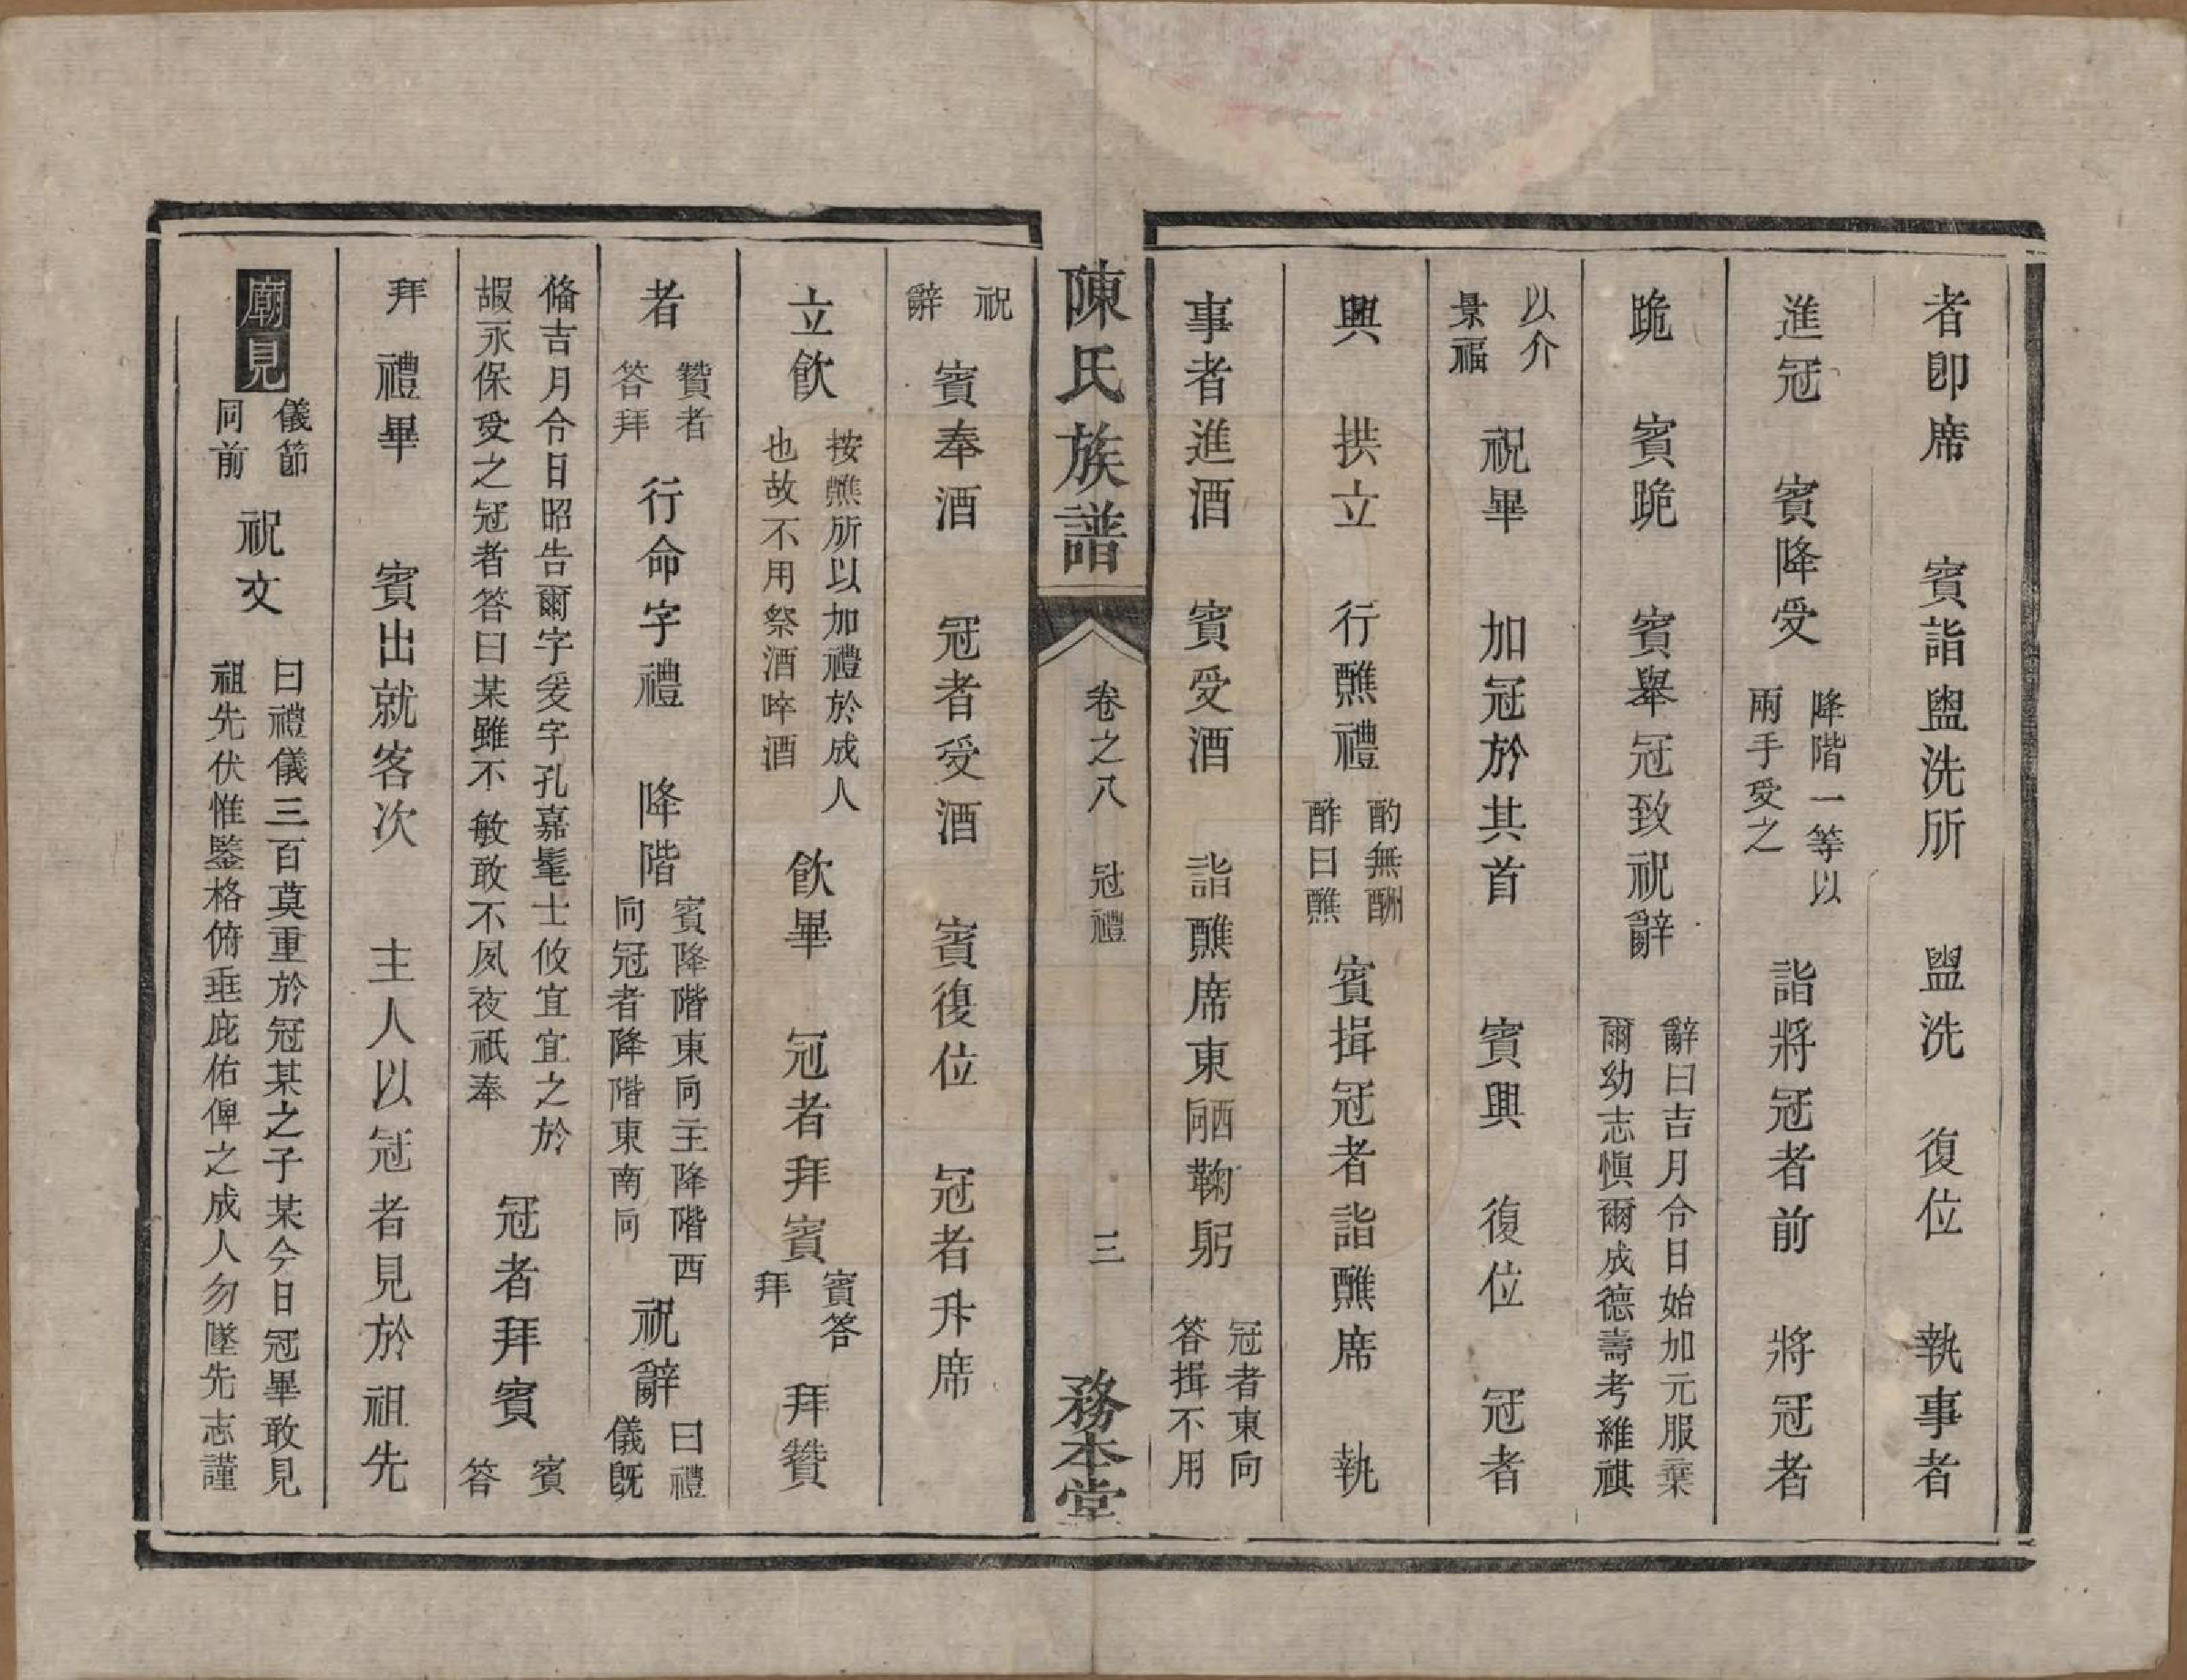 者卽席　賓詣盥洗所　盥洗　復位　執事者
進冠　賓降受 降階一等以兩手受之　詣將冠者前　將冠者
跪　賓跪　賓舉冠致祝辭 辭曰吉月令日始加元服棄爾幼志愼爾成德壽考維祺
以介景福　祝畢　加冠於其首　賓興　復位　冠者
興　拱立　行醮禮 酌無酬酢曰醮　賓揖冠者詣醮席　執
事者進酒　賓受酒　詣醮席東西向鞠躬 冠者東向答揖不用
陳氏族譜　卷之八　冠禮　三　務本堂
祝辭　賓奉酒　冠者受酒　賓復位　冠者升席
立飲 按醮所以加禮於成人也故不用祭酒啐酒　飲畢　冠者拜賓 賓答拜　拜贊
者 贊者答拜　行命字禮　降階 賓降階東向主降階西向冠者降階東南向　祝辭 曰禮儀旣
備吉月令日昭告爾字爰字孔嘉髦士攸宜宜之於嘏永保受之冠者答曰某雖不敏敢不夙夜祇奉　冠者拜賓 賓答
拜　禮畢　賓出就客次　主人以冠者見於祖先
廟見 儀節同前　祝文 曰禮儀三百莫重於冠某之子某今日冠畢敢見祖先伏惟鑒格俯垂庇佑俾之成人勿墜先志謹